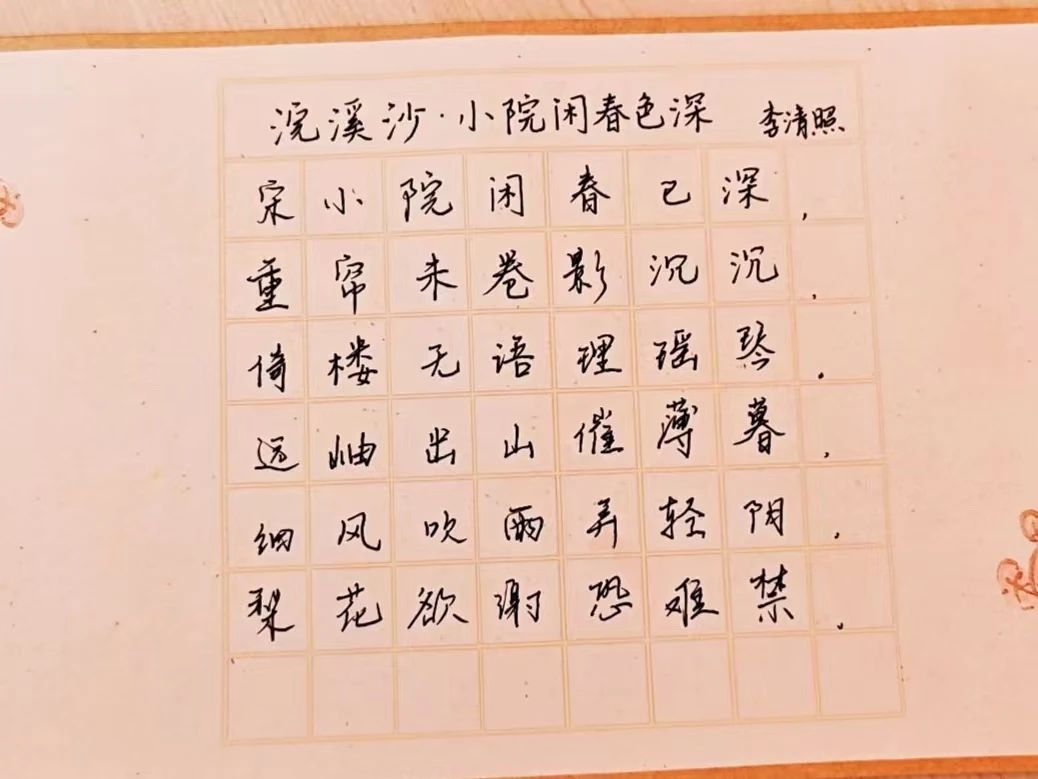 浣溪沙·小院闲春色深 李清照
宋小院闲春已深，
重帘未卷影沉沉，
倚楼无语理瑶琴。
远岫出山催薄暮，
细风吹雨弄轻阴，
梨花欲谢恐难禁。